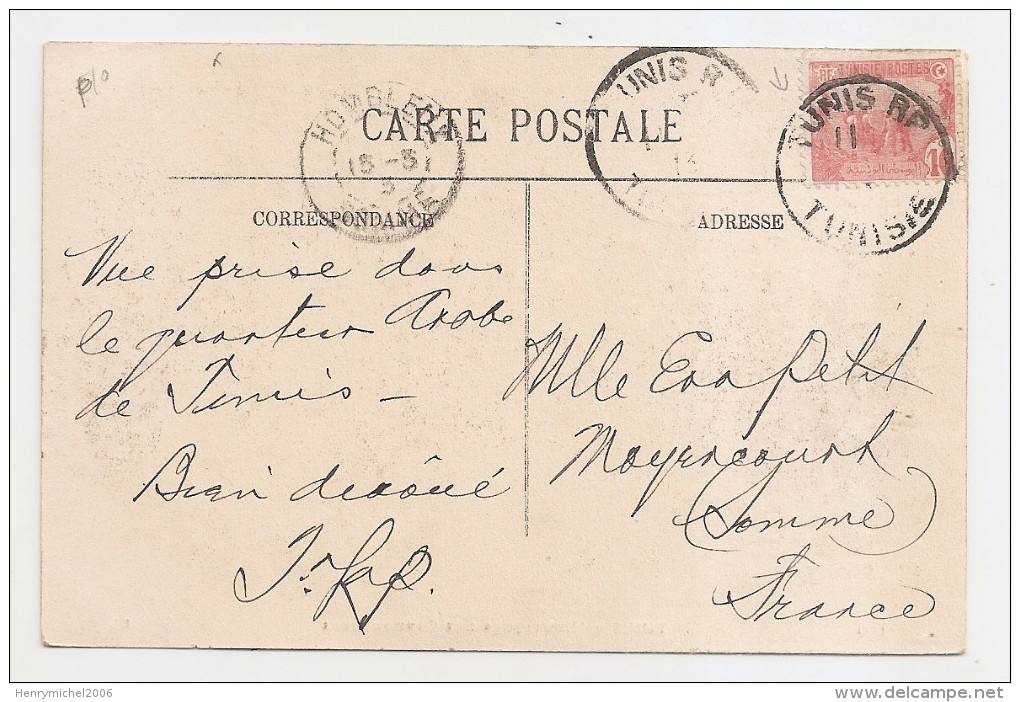 CARTE POSTALE
TUNIS RP
11
TUNISIE
UNIS R
13
TUNISIE POSTES
10
HOMBLEUX
13 -3
SOMME
CORRESPONDANCE
ADRESSE
Vue prise dans
le quartier Arabe
de Tunis -
Bien dévoué
Mlle Eva Petit
Moyencourt
(Somme)
France
Henrymichel2006
delcampe.net